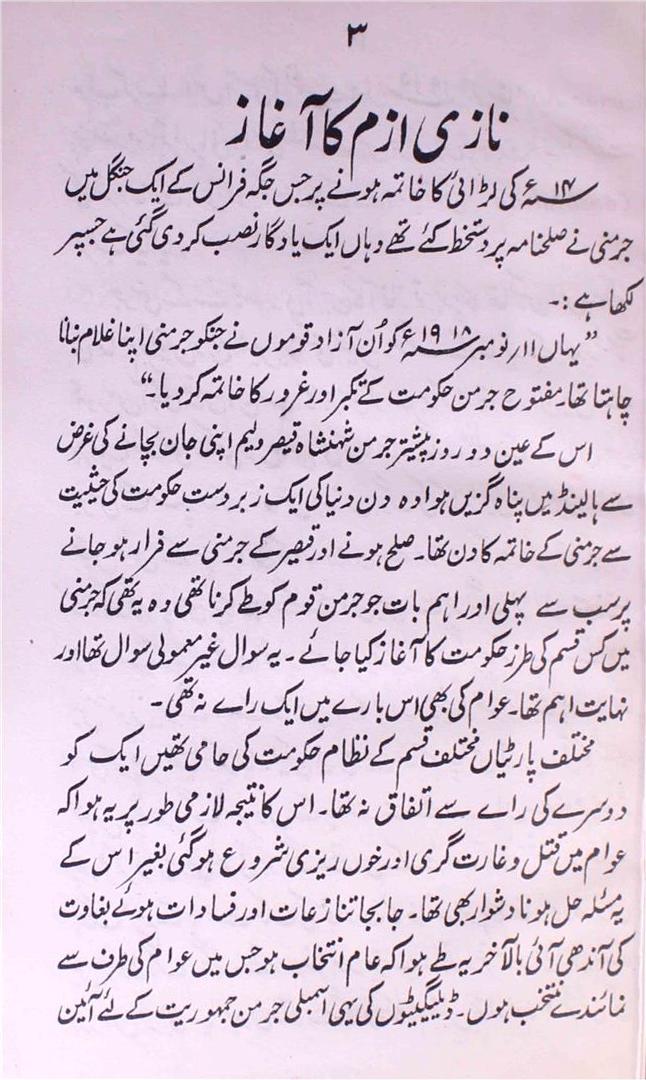 ۳
نازی ازم کا آغاز
۱۴ء کی لڑائی کا خاتمہ ہونے پر جس جگہ فرانس کے ایک جنگل میں
جرمنی نے صلحنامہ پر دستخط کئے تھے وہاں ایک یادگار نصب کردی گئی ہے جسپر
لکھا ہے :۔
”یہاں ۱۱؍نومبر ۱۹۱۸ء کو اُن آزاد قوموں نے جنکو جرمنی اپنا غلام بنانا
چاہتا تھا۔ مفتوح جرمن حکومت کے تکبر اور غرور کا خاتمہ کردیا۔“
اس کے عین دو روز پیشتر جرمن شہنشاہ قیصر ولیم اپنی جان بچانے کی غرض
سے ہالینڈ میں پناہ گزیں ہوا وہ دن دنیا کی ایک زبردست حکومت کی حیثیت
سے جرمنی کے خاتمہ کا دن تھا۔ صلح ہونے اور قیصر کے جرمنی سے فرار ہو جانے
پر سب سے پہلی اور اہم بات جو جرمن قوم کو طے کرنا تھی وہ یہ تھی کہ جرمنی
میں کس قسم کی طرز حکومت کا آغاز کیا جائے۔ یہ سوال غیر معمولی سوال تھا اور
نہایت اہم تھا۔ عوام کی بھی اس بارے میں ایک رائے نہ تھی۔
مختلف پارٹیاں مختلف قسم کے نظام حکومت کی حامی تھیں ایک کو
دوسرے کی رائے سے اتفاق نہ تھا۔ اس کا نتیجہ لازمی طور پر یہ ہوا کہ
عوام میں قتل و غارت گری اور خوں ریزی شروع ہوگئی بغیر اس کے
یہ مسئلہ حل ہونا دشوار بھی تھا۔ جابجا تنازعات اور فسادات ہوئے بغاوت
کی آندھی آئی بالآخر یہ طے ہوا کہ عام انتخاب ہو جس میں عوام کی طرف سے
نمائندے منتخب ہوں۔ ڈیلیگیٹوں کی یہی اسمبلی جرمن جمہوریت کے لئے آئین